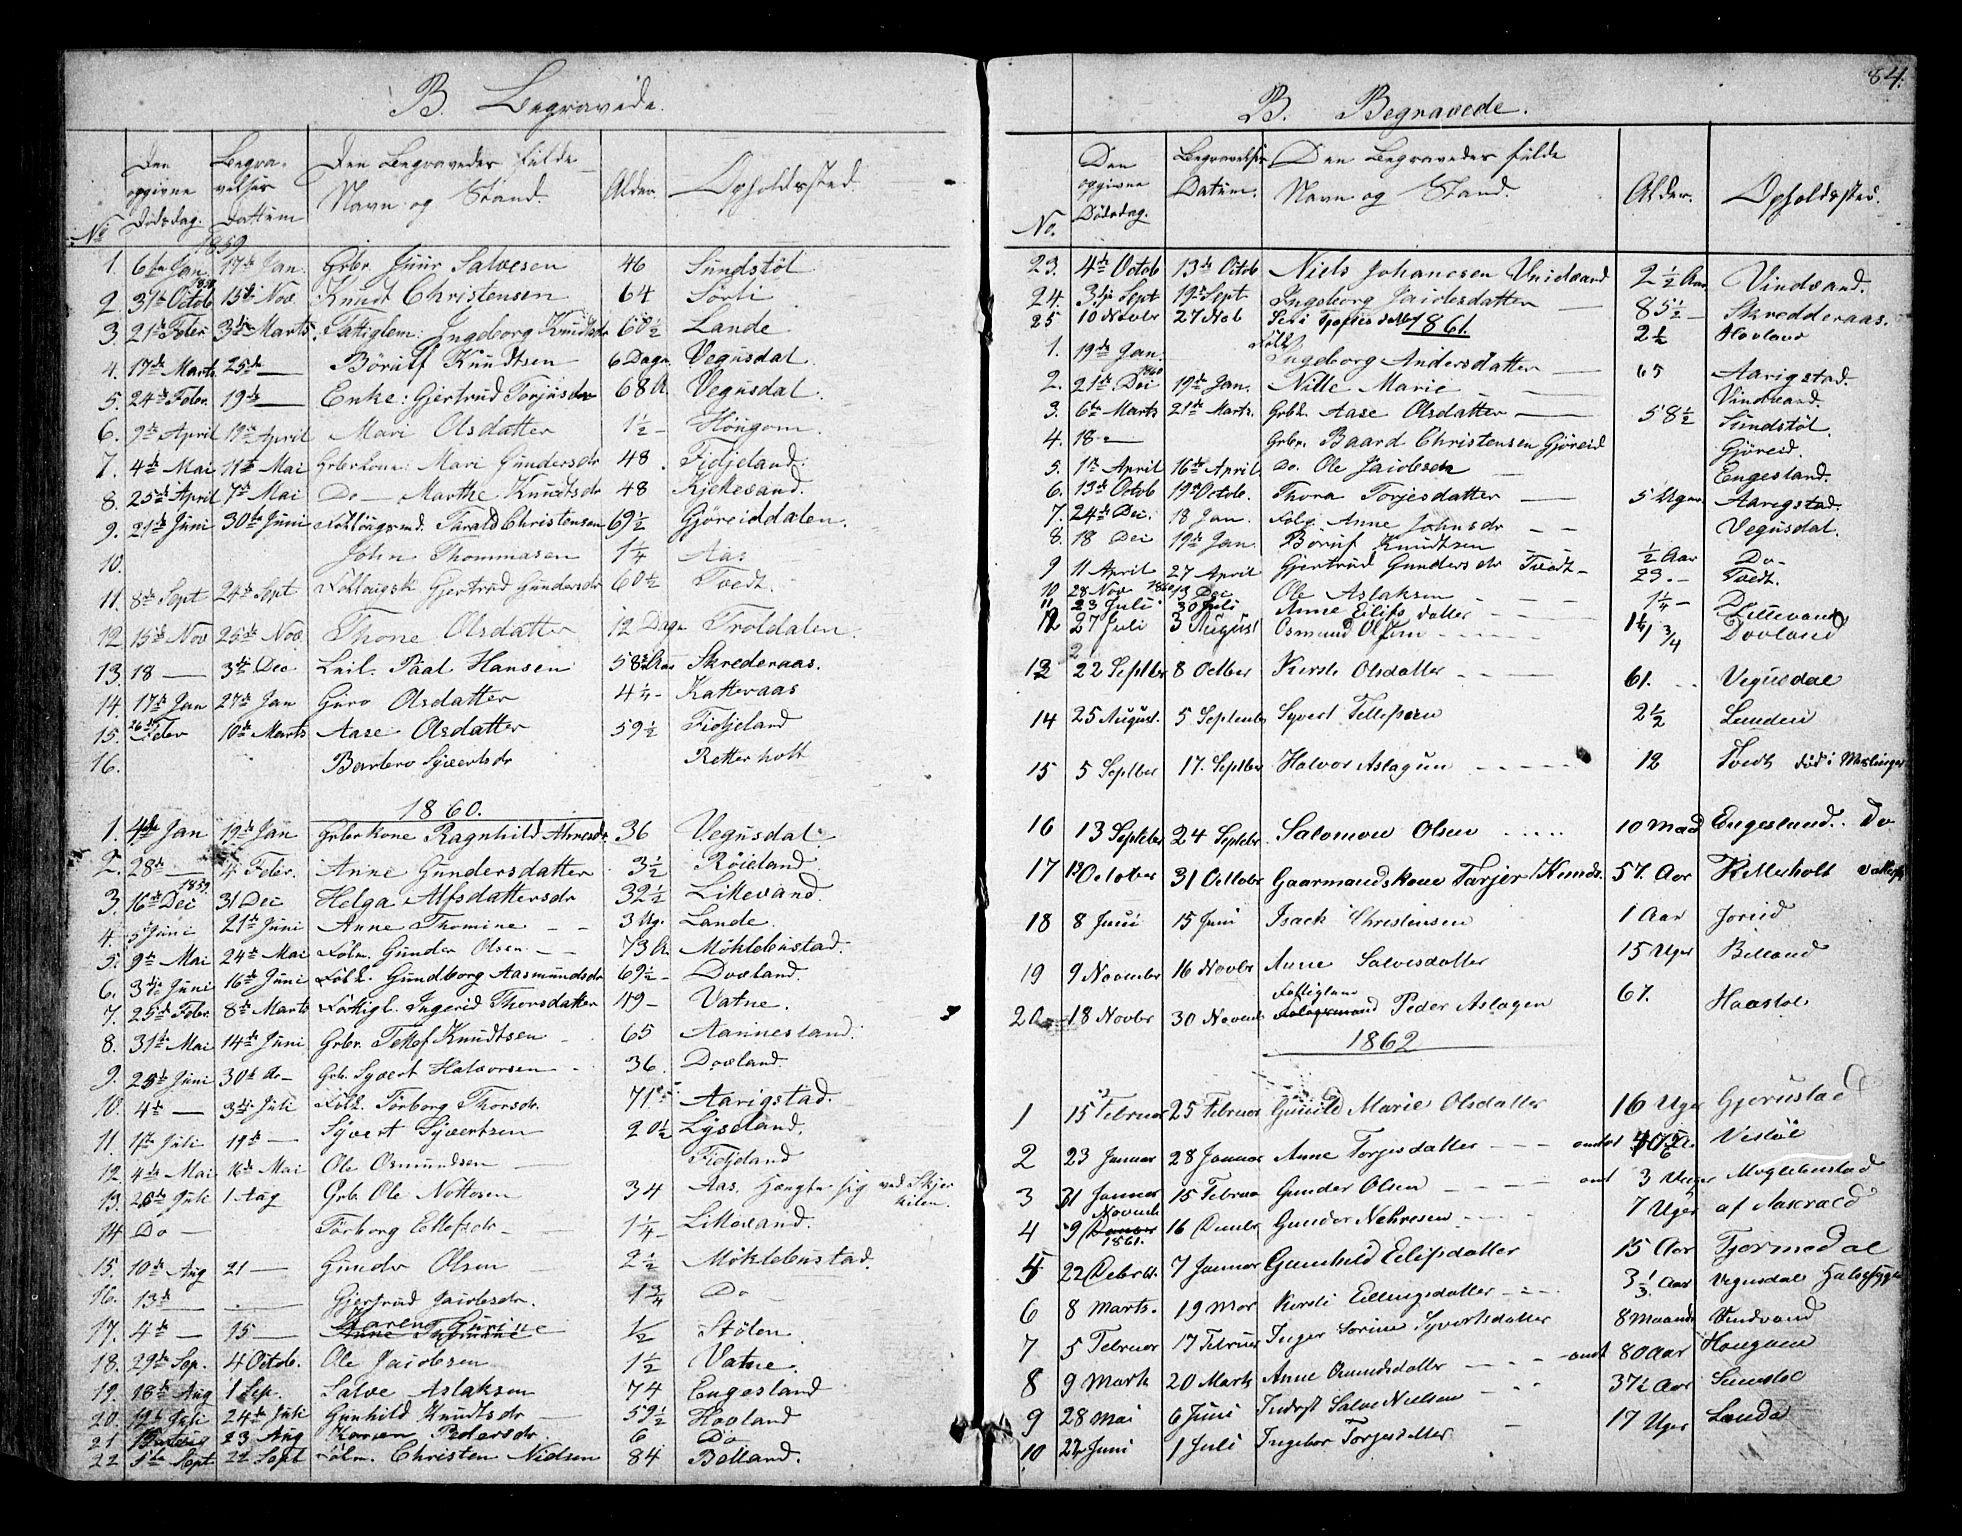 B. Begravede.
No | Den opgivne Dødsdag. | Begravelses Dattum | Den Begravedes fulde Navn og Stand. | Alder. | Opholdssted.
1859
1. 6te Jan. 17de Jan. Grbr Juur Salvesen 46 Sundstøl
2. 31te Octob 1858 15de Nov. Knudt Christensen 64 Sørli
3. 21de Febr 3die Marts. Fattiglem: Ingeborg Knudsdr 60½ Lande
4. 17de Marts 25de — Børulf Knudtsen 6 Dage Vegusdal
5. 24de Febr. 19de — Enke: Gjertrud Torjusdr 68 A. Vegusdal.
6. 9de April 19de April Mari Olsdatter 1½ - Høngom.
7. 4de Mai 11te Mai Grbrkone: Mari Gundersdr 48. Fidjeland.
8. 25de April 7de Mai Do — Marthe Knudtsdr 48 Kjetevand.
9. 21de Juni 30te Juni Tarald Christensen 69½ Gjøreiddalen.
10. John Thommasen 1¼ Aas
11. 8de Sept 24de Sept Gjertrud Gundersdr 60½ Tvedt.
12 15de Nov 26de Nov. Thone Olsdatter 12 Dage Troldalen.
13. 18 — 3die Dec Paal Hansen 58 Aar Skrederaas.
14. 17de Jan 27de Jan Guro Olsdatter 4¼ - Katteraas
15. 26de Febr 10de Marts Aase Olsdatter 59½ Fidjeland
16. Barbero Syvertsdr Retterholt
1860.
1. 4de Jan 19de Jan Grbrkone Ragnhild Ahresdr 36 Vegusdal.
2. 28de — 4 Febr. Anne Gundersdatter 3½ Røieland.
3. 16de Dec 1859. 31 Dec Helga Alfsdattersdr 32½ Likevand.
4. 5 Juni 21de Juni Anne Thomine - - 3 Ug. Lande
5. 9de Mai 24de Mai Følm. Gunder Olsen - - 73 A. Møklebustad.
6. 3die Juni 16de Juni Følk. Gundborg Aasmundsdr 69½ - Dovland
7. 25de Febr. 8de Marts Fattigl. Ingerid Thorsdatter 49 - Vatne.
8. 31te Mai 14de Juni Grbr. Tellef Knudtsen - 65 Aannesland.
9. 25de Juni 30te do - Grb. Syvert Halvorsen - 36. Dovland.
10. 4de — 3die Juli Følk. Tørborg Thorsdr. 71 Aarigstad.
11. 1te Juli 19de — Syvert Syvertsen 20½ Lyseland.
12. 4de Mai 16de Mai Ole Osmundsen Fidjeland
13. 26de Juli 1. Aug Grb. Ole Nottosen 34 Aas. Hængte sig ved Skjerkilen.
14 Do — Tørborg Ellefsdr - 1¼ - Likevand.
15. 10de Aug 21 — Gunder Olsen - 2½ Møklebustad.
16. 13de — Gjertrud Jacobsdr. 1¾ Do
17. 4de — 15 — Karen Gurine Anne Thomine ½ Stølen
18. 29de Sep. 4 Octob. Ole Jacobsen 1½ Vatne.
19. 18de Aug 1 Sep. Salve Aslaksen 74 Engesland
20. 12te Juli 24de Juli Gunhild Knudtsdr 59½ Hovland
21 23 Aug Karen Pedersdr. 6 Do
22 5te Sept 22 Sept Følm. Christen Nielsen 84 Belland.
84.
B. Begravede.
No. | Den opgivne Dødsdag. | Begravelses Datum. | Den Begravedes fulde Navn og Stand. | Alder. | Opholdssted.
23. 4de Octob 13de Octob Niels Johanesen Vindvand 2½ Aar Vindvand.
24. 3die Sept 19de Sept Ingeborg Jacobsdatter — 85½ - Skredderaas.
25 10 Novbr 27 Nob 2½ Hovland
1861.
1. 19de Jan. Følk. Ingeborg Andersdatter — 65 Aarigstad.
2. 21de Dec 1860 19de Jan. Nille Marie — Vindvand.
3. 6te Marts 21de Marts. Grbk. Aase Olsdatter — 58½ Sundstøl.
4. 18 — Grbr. Baard Christensen Gjøreid Gjøreid.
5. 1te April 16de April Do. Ole Jacobsen — Engesland.
6. 13de Octob 19de Octob. Thora Torjesdatter — 5 Uger Aarigstad.
7. 24de Dec. 18 Jan. Anne Johnsdr - - Vegusdal.
8. 18 Dec 19de Jan. Børulf Knudtsen ½ Aar Do -
9 11 April 27 April Gjertrud Gundersdr Tvedt - 29. - Tvedt.
10 28 Nov 1860 13 Dec Ole Aslaksen - - - 1¼ -
11 23 Juli 30 Juli Anne Eilifsdatter - - - Dovland
12 27 Juli 3 August Osmund Olsen - - - ¾
13 22 Septber 8 Octber Kirsti Olsdatter - - - 61. - Vegusdal
14 25 August. 5 Septenber Syvert Tellefsen 2½ Lunden
15 5 Septber 17. Septber Halvor Aslagsen - - - 12 Tvedt død i
16 13 Septeber 24 Septebr. Salomon Olsen - - - 10 Maad Engesland. Do
17 13 October 31 Octobr Gaarmandskone Tarjer Knuds. 57. Aar Retterholt
18 8 Juni 15 Juni Isach Christensen 1 Aar Joreid
19 9 November 16 Novbr Anne Salvesdatter 15 Uger Belland
20 18 Novbr 30 Novenb Fattiglem Peder Aslagsen 67. Haastøl
1862
1 15 Februar 25 Februar Gunild Marie Olsdatter 16 Uger Gjerustad
2 23 Januar 28 Januar Anne Torjesdatter - - - omtr Vestøl
3 31 Januar 15 Februar Gunder Olsen - - - omt 3 Uger Møglebustad
4 9 Novemb 1861. 16 Decmbr Gunder Nehresen - - - 7 Uger af Aasvald
5 22 Debrbr. 7 Januar Gunhild Eilifsdatter 15 Aar Tjørmodal
6 8 Marts. 19 Mar Kirsti Ellingsdatter - - - 3⅓ Aar Vegusdal
7 5 Februar 17 Februar Inger Sorine Syvertsdatter 8 Maander Vindvand
8 9 Mark 20 Mark Anne Osmundsdatter - - - omt 80 Aar Hougum
9 28 Mai 6 Juni Salve Nielsen 37½ Aar Sunstøl
10 22 Juni 1 Juli Ingebor Torjesdatter 17 Uger Landa